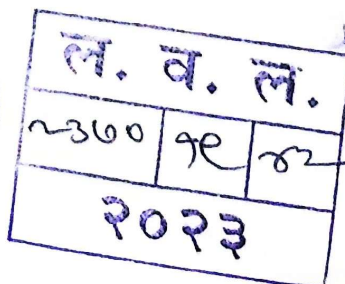 ल. व. ल.
२३७० १९ ४२
२०२३